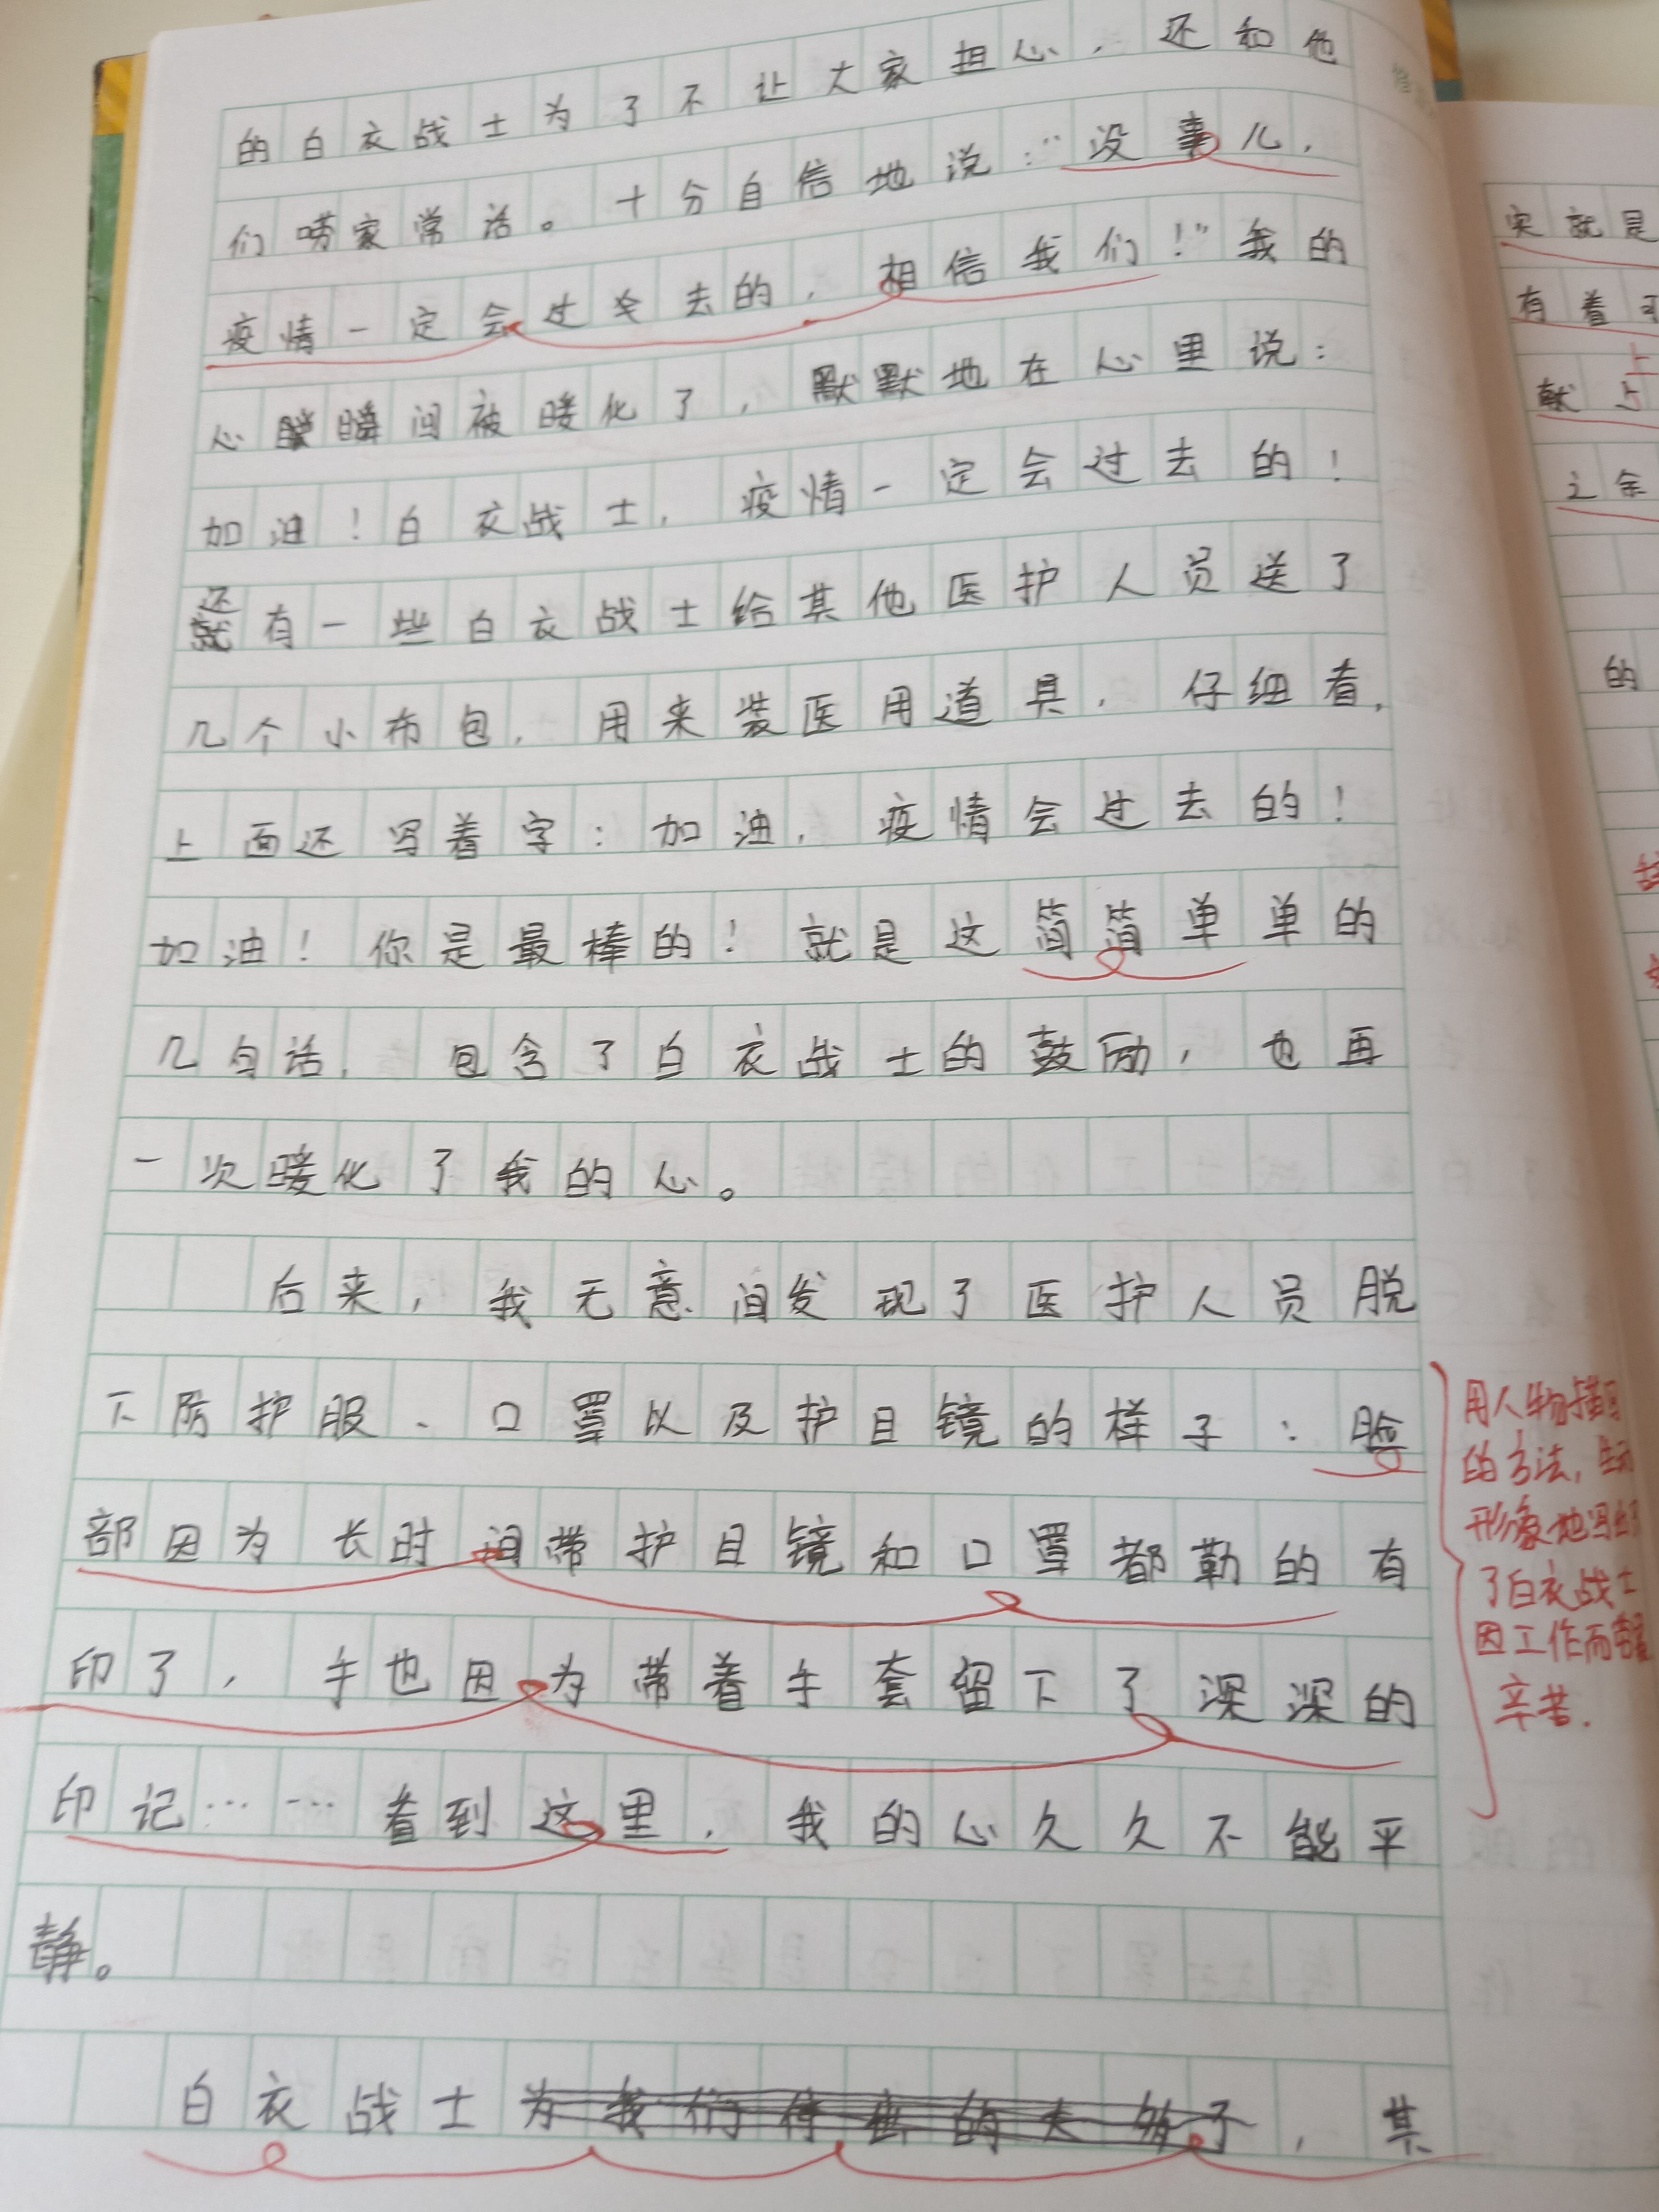 的白衣战士为了不让大家担心，还和他
们唠家常话。十分自信地说：“没事儿，
疫情一定会过去的，相信我们！”我的
心瞬间被暖化了，默默地在心里说：
加油！白衣战士，疫情一定会过去的！
还
有一些白衣战士给其他医护人员送了
几个小布包，用来装医用道具，仔细看，
上面还写着字：加油，疫情会过去的！
加油！你是最棒的！就是这简简单单的
几句话，包含了白衣战士的鼓励，也再
一次暖化了我的心。
后来，我无意间发现了医护人员脱
下防护服、口罩以及护目镜的样子：脸
部因为长时间带护目镜和口罩都勒的有
印了，手也因为带着手套留下了深深的
印记……看到这里，我的心久久不能平
静。
白衣战士，其
用人物描写
的方法，生动
形象地写出
了白衣战士
因工作而
辛苦.
实就是
有着
献上
之余
的